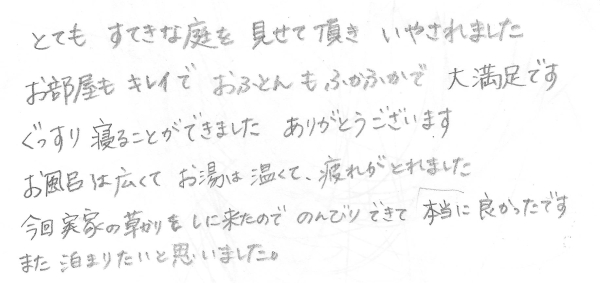 とても すてきな庭を 見せて頂き いやされました
お部屋も キレイで おふとんも ふかふかで 大満足です
ぐっすり 寝ることができました ありがとうございます
お風呂は広くて お湯は温くて、疲れがとれました
今回実家の草かりをしに来たので のんびりできて 本当に良かったです
また 泊まりたいと思いました。